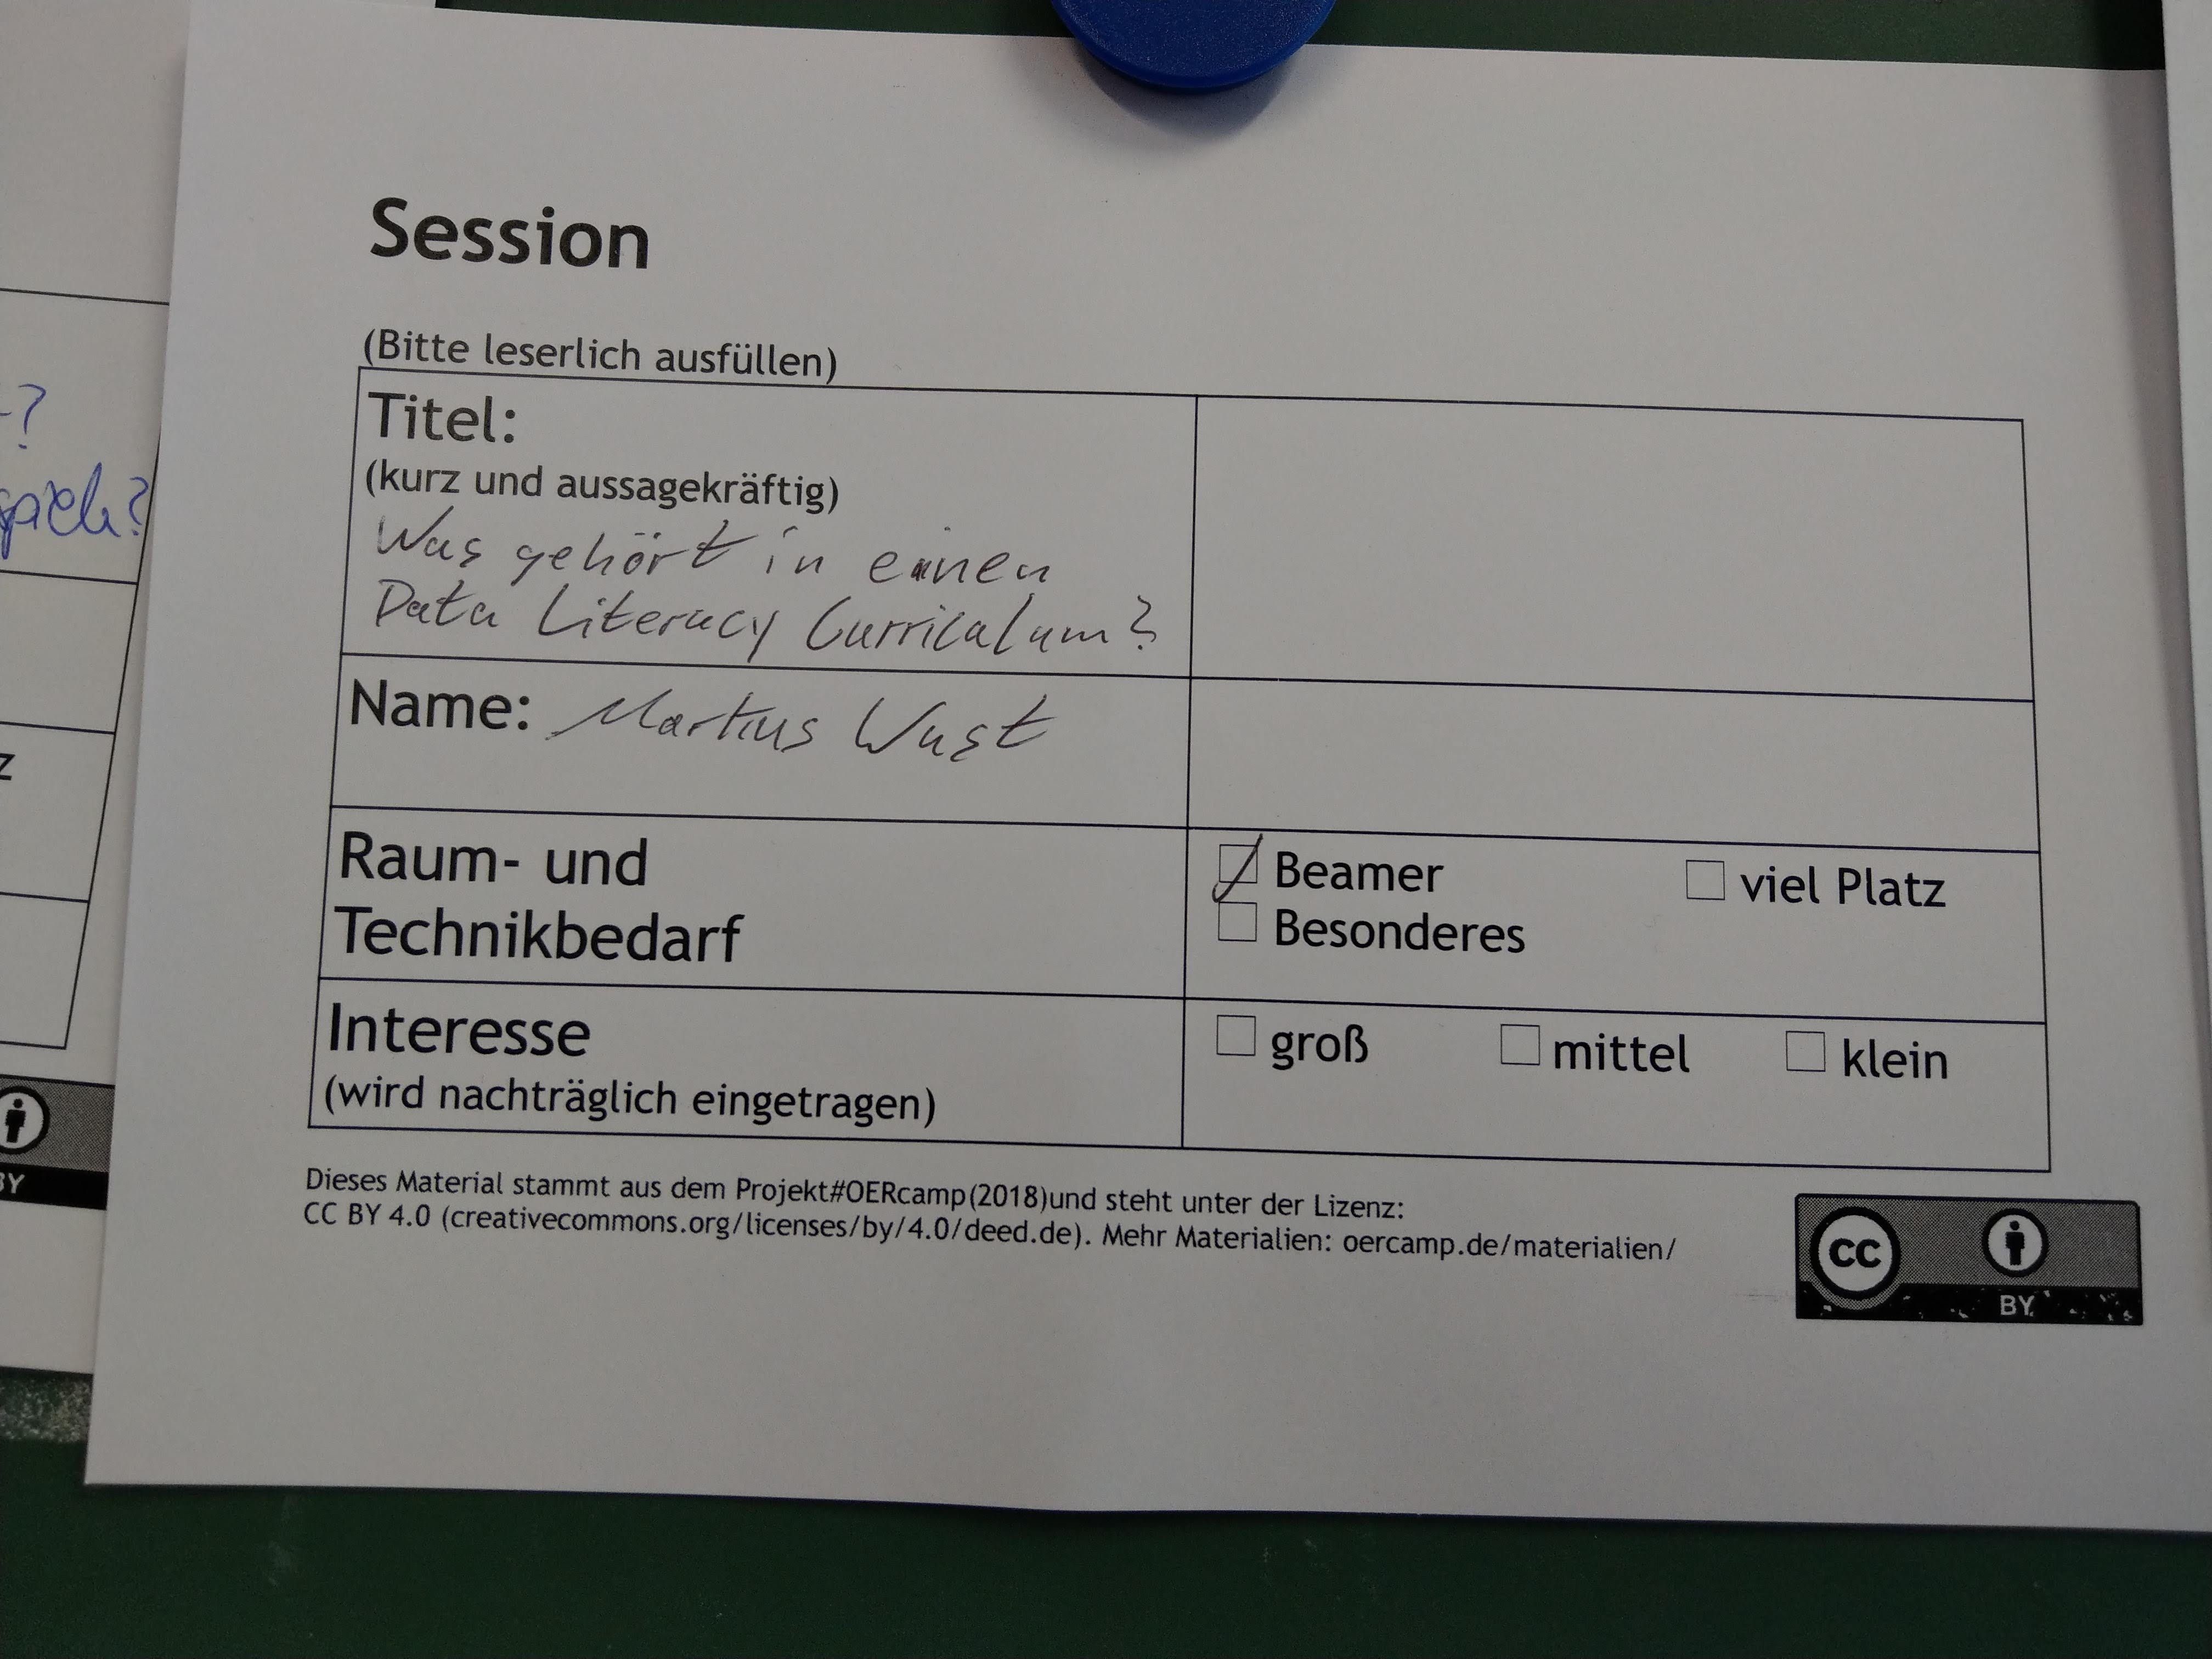 -?
Session
(Bitte leserlich ausfüllen)
Titel:
(kurz und aussagekräftig)
Was gehört in einen
Data Literacy Curriculum?
Name: Markus Wust
Raum- und
Technikbedarf
Beamer
viel Platz
Besonderes
Interesse
(wird nachträglich eingetragen)
groß
mittel
klein
Dieses Material stammt aus dem Projekt#OERcamp(2018)und steht unter der Lizenz:
CC BY 4.0 (creativecommons.org/licenses/by/4.0/deed.de). Mehr Materialien: oercamp.de/materialien/
cc
BY
z
BY